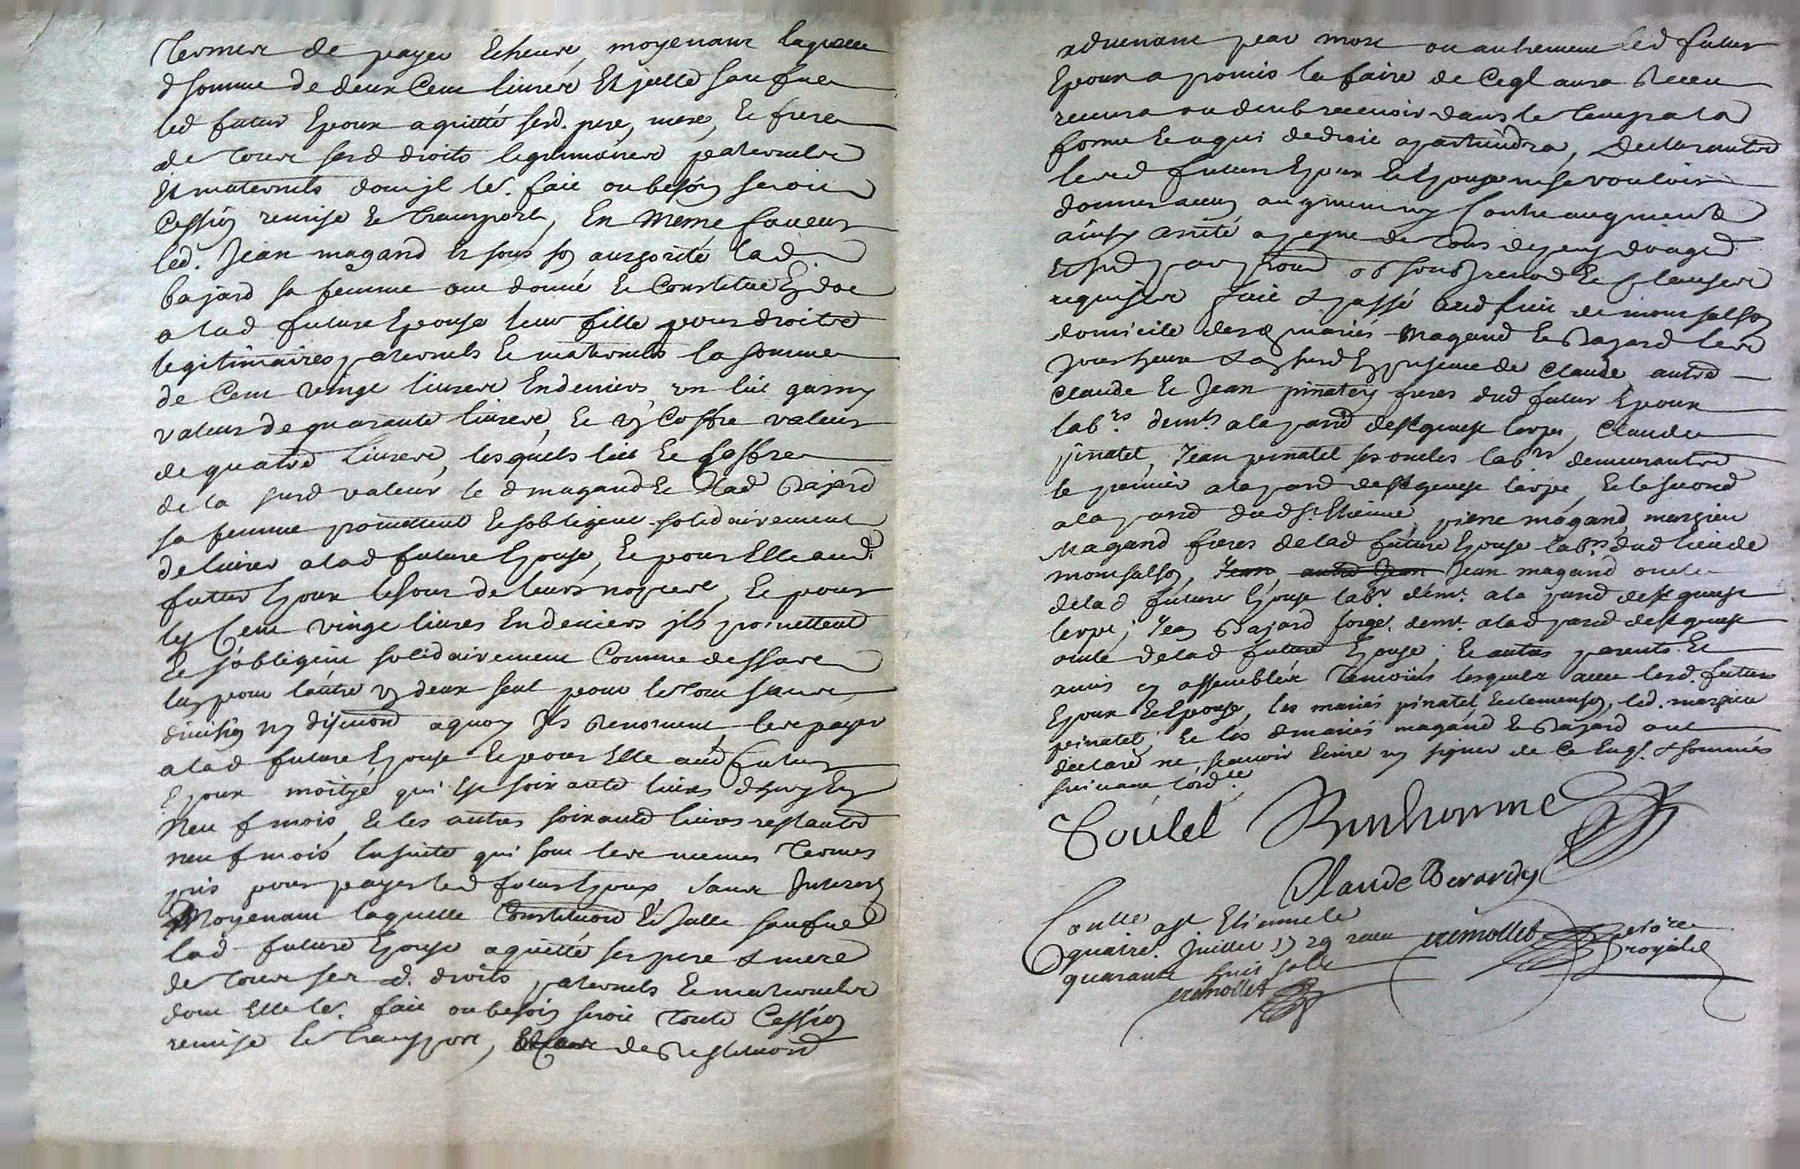 termes de payer echeus, moyenant laquelle
d somme de deux Cent livres Et jcelle sauf
led futur Epoux a quitté sesd. pere, mere, Et frere
de tous sesd droits legitimaires paternels
Et maternels dont jl le. fait ou besoin seroit
Cession remise Et transport, En meme faveur
led. Jean magand Et sous son authorité lad.
bajard sa femme ont donné Et Constitué En dot
a lad future Epouse leur fille pour droits
legitimaires paternels Et maternels la somme
de Cent vingt livres En deniers, un lit garny
valeur de quarante livres, Et un Coffre valeur
de quatre livres, lesquels lit Et Coffre
de la susd valeur le d magand Et lad Bajard
sa femme promettent Et sobligent solidairement
delivrer a lad future Epouse, Et pour Elle aud.
futur Epoux le jour de leurs nopces, Et pour
les Cent vingt livres En deniers jls promettent
Et sobligent solidairement Comme dessus
lun pour lautre un deux seul pour le tout sans
division ny discution a quoy jls Renoncent, les payer
a lad future Epouse Et pour Elle aud futur
Epoux moitye qui Est soixante livres dhuy En
neuf mois, Et les autres soixante livres restantes
neuf mois Ensuite qui sont les memes termes
pris pour payer led futur Epoux, sans Interest
Moyenant laquelle Constitution Et jcelle sauf
lad future Epouse a quitté ses pere & mere
de tous ses d. droits paternels Et maternels
dont Elle le. fait ou besoin seroit toute Cession
remise Et transport, de Restitution
advenant par mort ou autrement led futur
Epoux a promis la faire de Ce qjl aura Receu
recevra ou deub recevoir dans le temps a la
forme Et a qui de droit apartiendra, Declarant
lesd futurs Epoux Et Epouse ne se vouloir
donner aucun augment ny contre augment
ainsy arreté a peyne de tous depens domages
Et sus par foy obs soub renond Et Clauses
requises fait & passé aud lieu de montsalson
domicile desd mariés Magand Et Bajard les
jour heure & an susd En presence de Claude autre
Claude Et Jean pinatel freres dud futur Epoux
labrs. demts a la parr de St genest lerpt, Claude
pinatel, Jean pinatel ses oncles labrs demeurants
le premier a la parr de St genest lerpt, Et le second
a la parr dud St. Etienne, pierre magand, mathieu
Magand freres de lad future Epouse labrs dud lieu de
montsalson, Jean, autre Jean Jean magand oncle
de lad future Epouse labr. demt. a la parr de St genest
lerpt, Jean Bajard forgr. demt. a lad parr de St genest
oncle de lad future Epouse, Et autres parents Et
amis y assemblés temoins lesquels avec lesd. futurs
Epoux Et Epouse, les mariés pinatel, led. mathieu
pinatel, Et les d mariés magand Et Bajard ont
declaré ne, scavoir Ecrire ny signer de Ce Enqs. & sommés
suivant lordce
Coulet Bonhomme
Claude Berardy
Conlle a St. Etienne le
quatre. Juillet 1729 receu cremollet notaire
quarante huit sols royal
cremollet